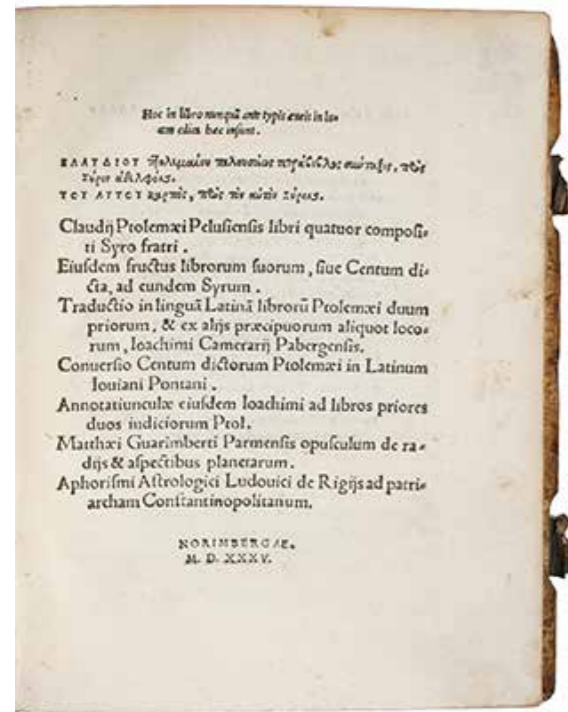 Hoc in libro nunquã ante typis æneis in lu-
cem edita hæc insunt.
ΚΛΑΥΔΙΟΥ Πτολεμαίου πελουσιέως τετράβιβλος σύνταξις, πρὸς
Σύρον ἀδελφόν.
ΤΟΥ ΑΥΤΟΥ καρπὸς, πρὸς τὸν αὐτὸν Σύρον.
Claudij Ptolemæi Pelusiensis libri quatuor composi-
ti Syro fratri.
Eiusdem fructus librorum suorum, siue Centum di-
cta, ad eundem Syrum.
Traductio in linguã Latinã librorũ Ptolemæi duum
priorum, & ex alijs præcipuorum aliquot loco-
rum, Ioachimi Camerarij Pabergensis.
Conuersio Centum dictorum Ptolemæi in Latinum
Iouiani Pontani.
Annotatiunculæ eiusdem Ioachimi ad libros priores
duos iudiciorum Ptol.
Matthæi Guarimberti Parmensis opusculum de ra-
dijs & aspectibus planetarum.
Aphorismi Astrologici Ludouici de Rigijs ad patri-
archam Constantinopolitanum.
NORIMBERGÆ.
M. D. XXXV.